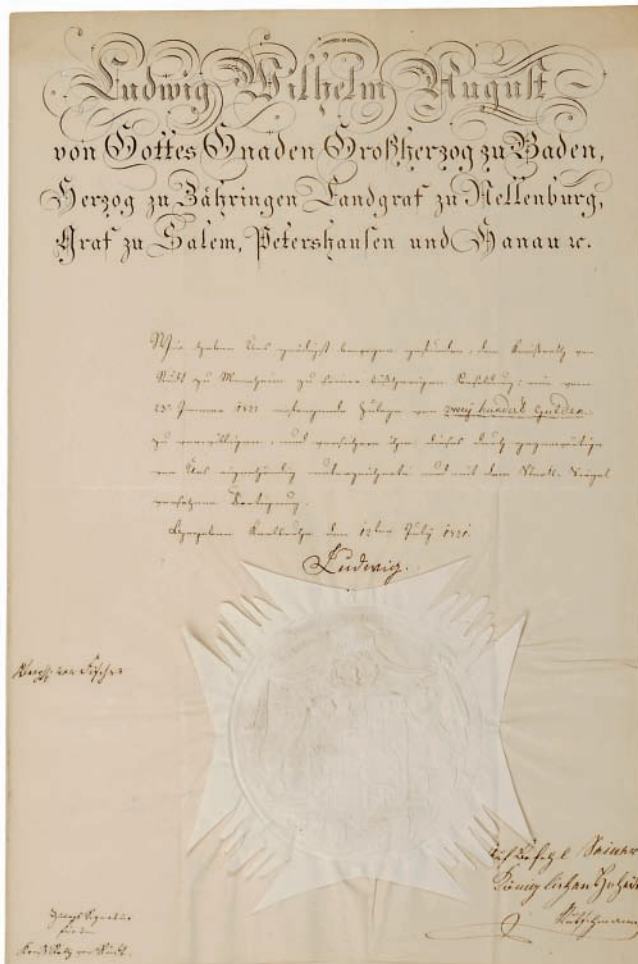 Ludwig Wilhelm August
von Gottes Gnaden Großherzog zu Baden,
Herzog zu Zähringen Landgraf zu Nellenburg,
Graf zu Salem, Petershausen und Hanau ꝛc.
Wir haben Uns gnädigst bewogen gefunden, dem Kreisrath von
zu Mannheim zu seiner bisherigen Besoldung, eine vom
23n Januar 1821 anfangende Zulage von zwey hundert Gulden
zu verwilligen, und versichern ihm dieses durch gegenwärtige
von Uns eigenhändig unterzeichnete und mit dem Staats-Siegel
versehene Urkunde.
Gegeben Karlsruhe den 12ten July 1821.
Ludwig.
von Fischer
Auf Befehl Seiner
Königlichen Hoheit
Zulags Signatur
für den
Kreis Rath von